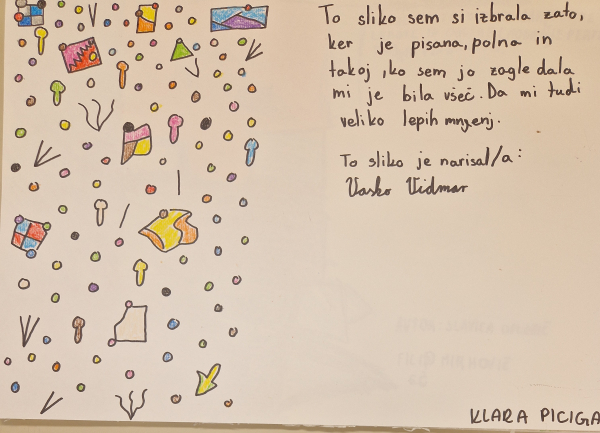 To sliko sem si izbrala zato,
ker je pisana, polna in
takoj, ko sem jo zagledala
mi je bila všeč. Da mi tudi
veliko lepih mnenj.
To sliko je narisal/a:
Vasko Vidmar
KLARA PICIGA